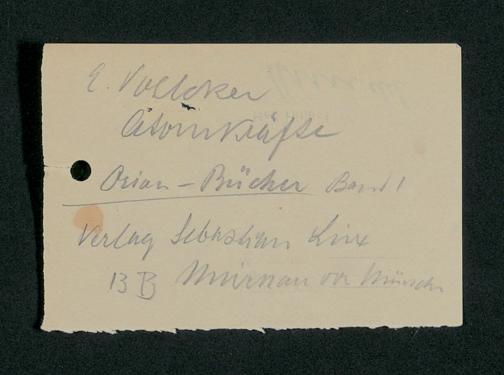 E. Voelcker
Atomkräfte
Orion - Bücher Band 1
Verlag Sebastian Lux
13 B Murnau vor Münch